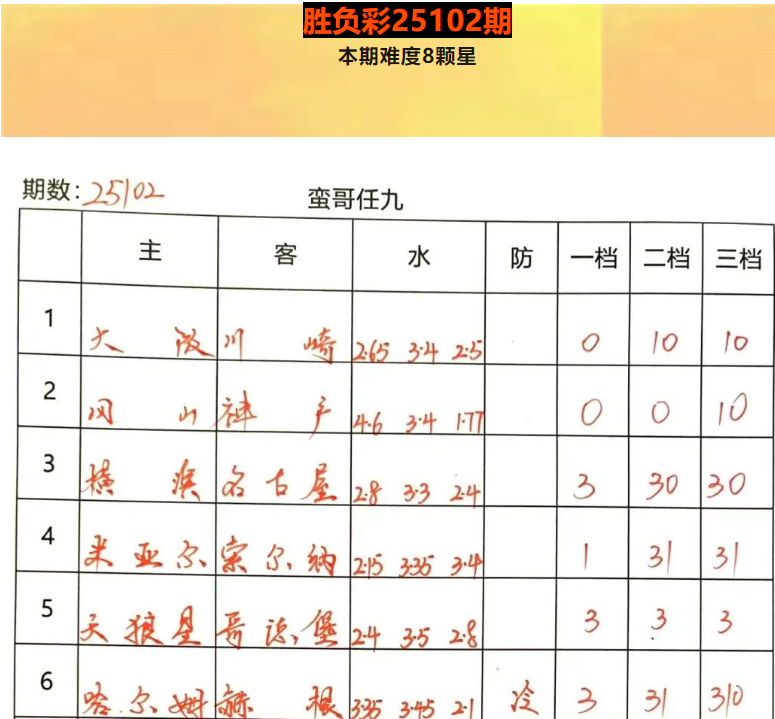 胜负彩25102期
本期难度8颗星
期数:25102 蛮哥任九
主 客 水 防 一档 二档 三档
1 大 阪 川 崎 2.65 3.4 2.5 0 10 10
2 冈 山 神 户 4.6 3.4 1.77 0 0 10
3 横 滨 名古屋 2.8 3.3 2.4 3 30 30
4 米亚尔 索尔纳 2.15 3.35 3.4 1 31 31
5 天狼星 哥德堡 2.4 3.5 2.8 3 3 3
6 哈尔姆 赫 根 3.35 3.45 2.1 冷 3 31 310